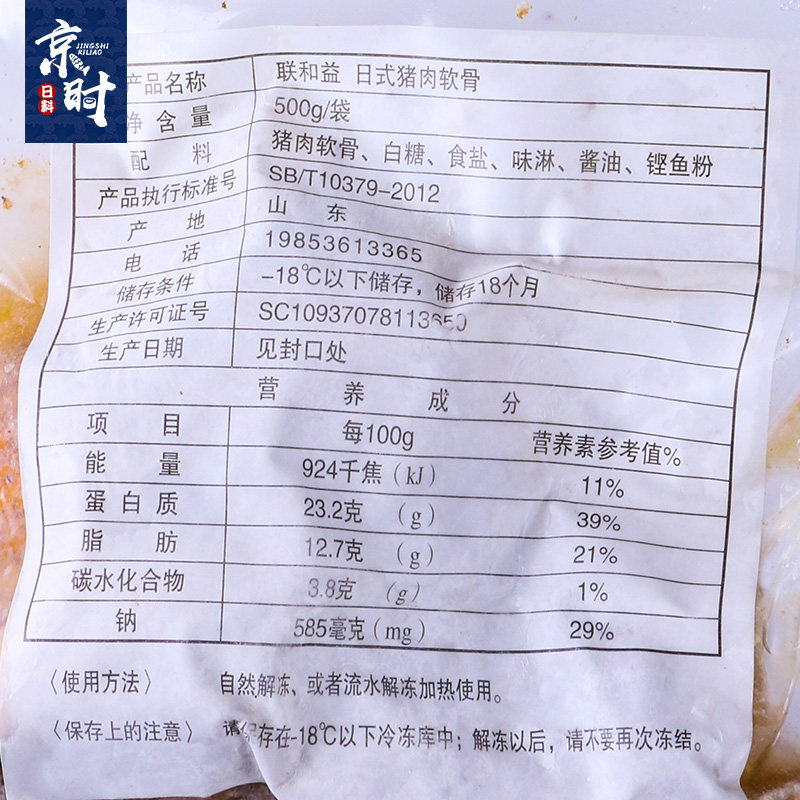 京时
JINGSHI
KILIAO
日料
产品名称 联和益 日式猪肉软骨
净含量 500g/袋
配料 猪肉软骨、白糖、食盐、味淋、酱油、铿鱼粉
产品执行标准号 SB/T10379-2012
产地 山东
电话 19853613365
储存条件 -18℃以下储存，储存18个月
生产许可证号 SC10937078113650
生产日期 见封口处
营养成分
项目 每100g 营养素参考值%
能量 924千焦(kJ) 11%
蛋白质 23.2克 (g) 39%
脂肪 12.7克 (g) 21%
碳水化合物 3.8克 (g) 1%
钠 585毫克(mg) 29%
〈使用方法〉 自然解冻、或者流水解冻加热使用。
〈保存上的注意〉 请保存在-18℃以下冷冻库中；解冻以后，请不要再次冻结。